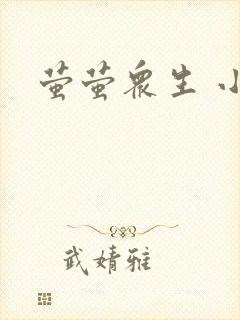 萤萤众生 小
武婧雅